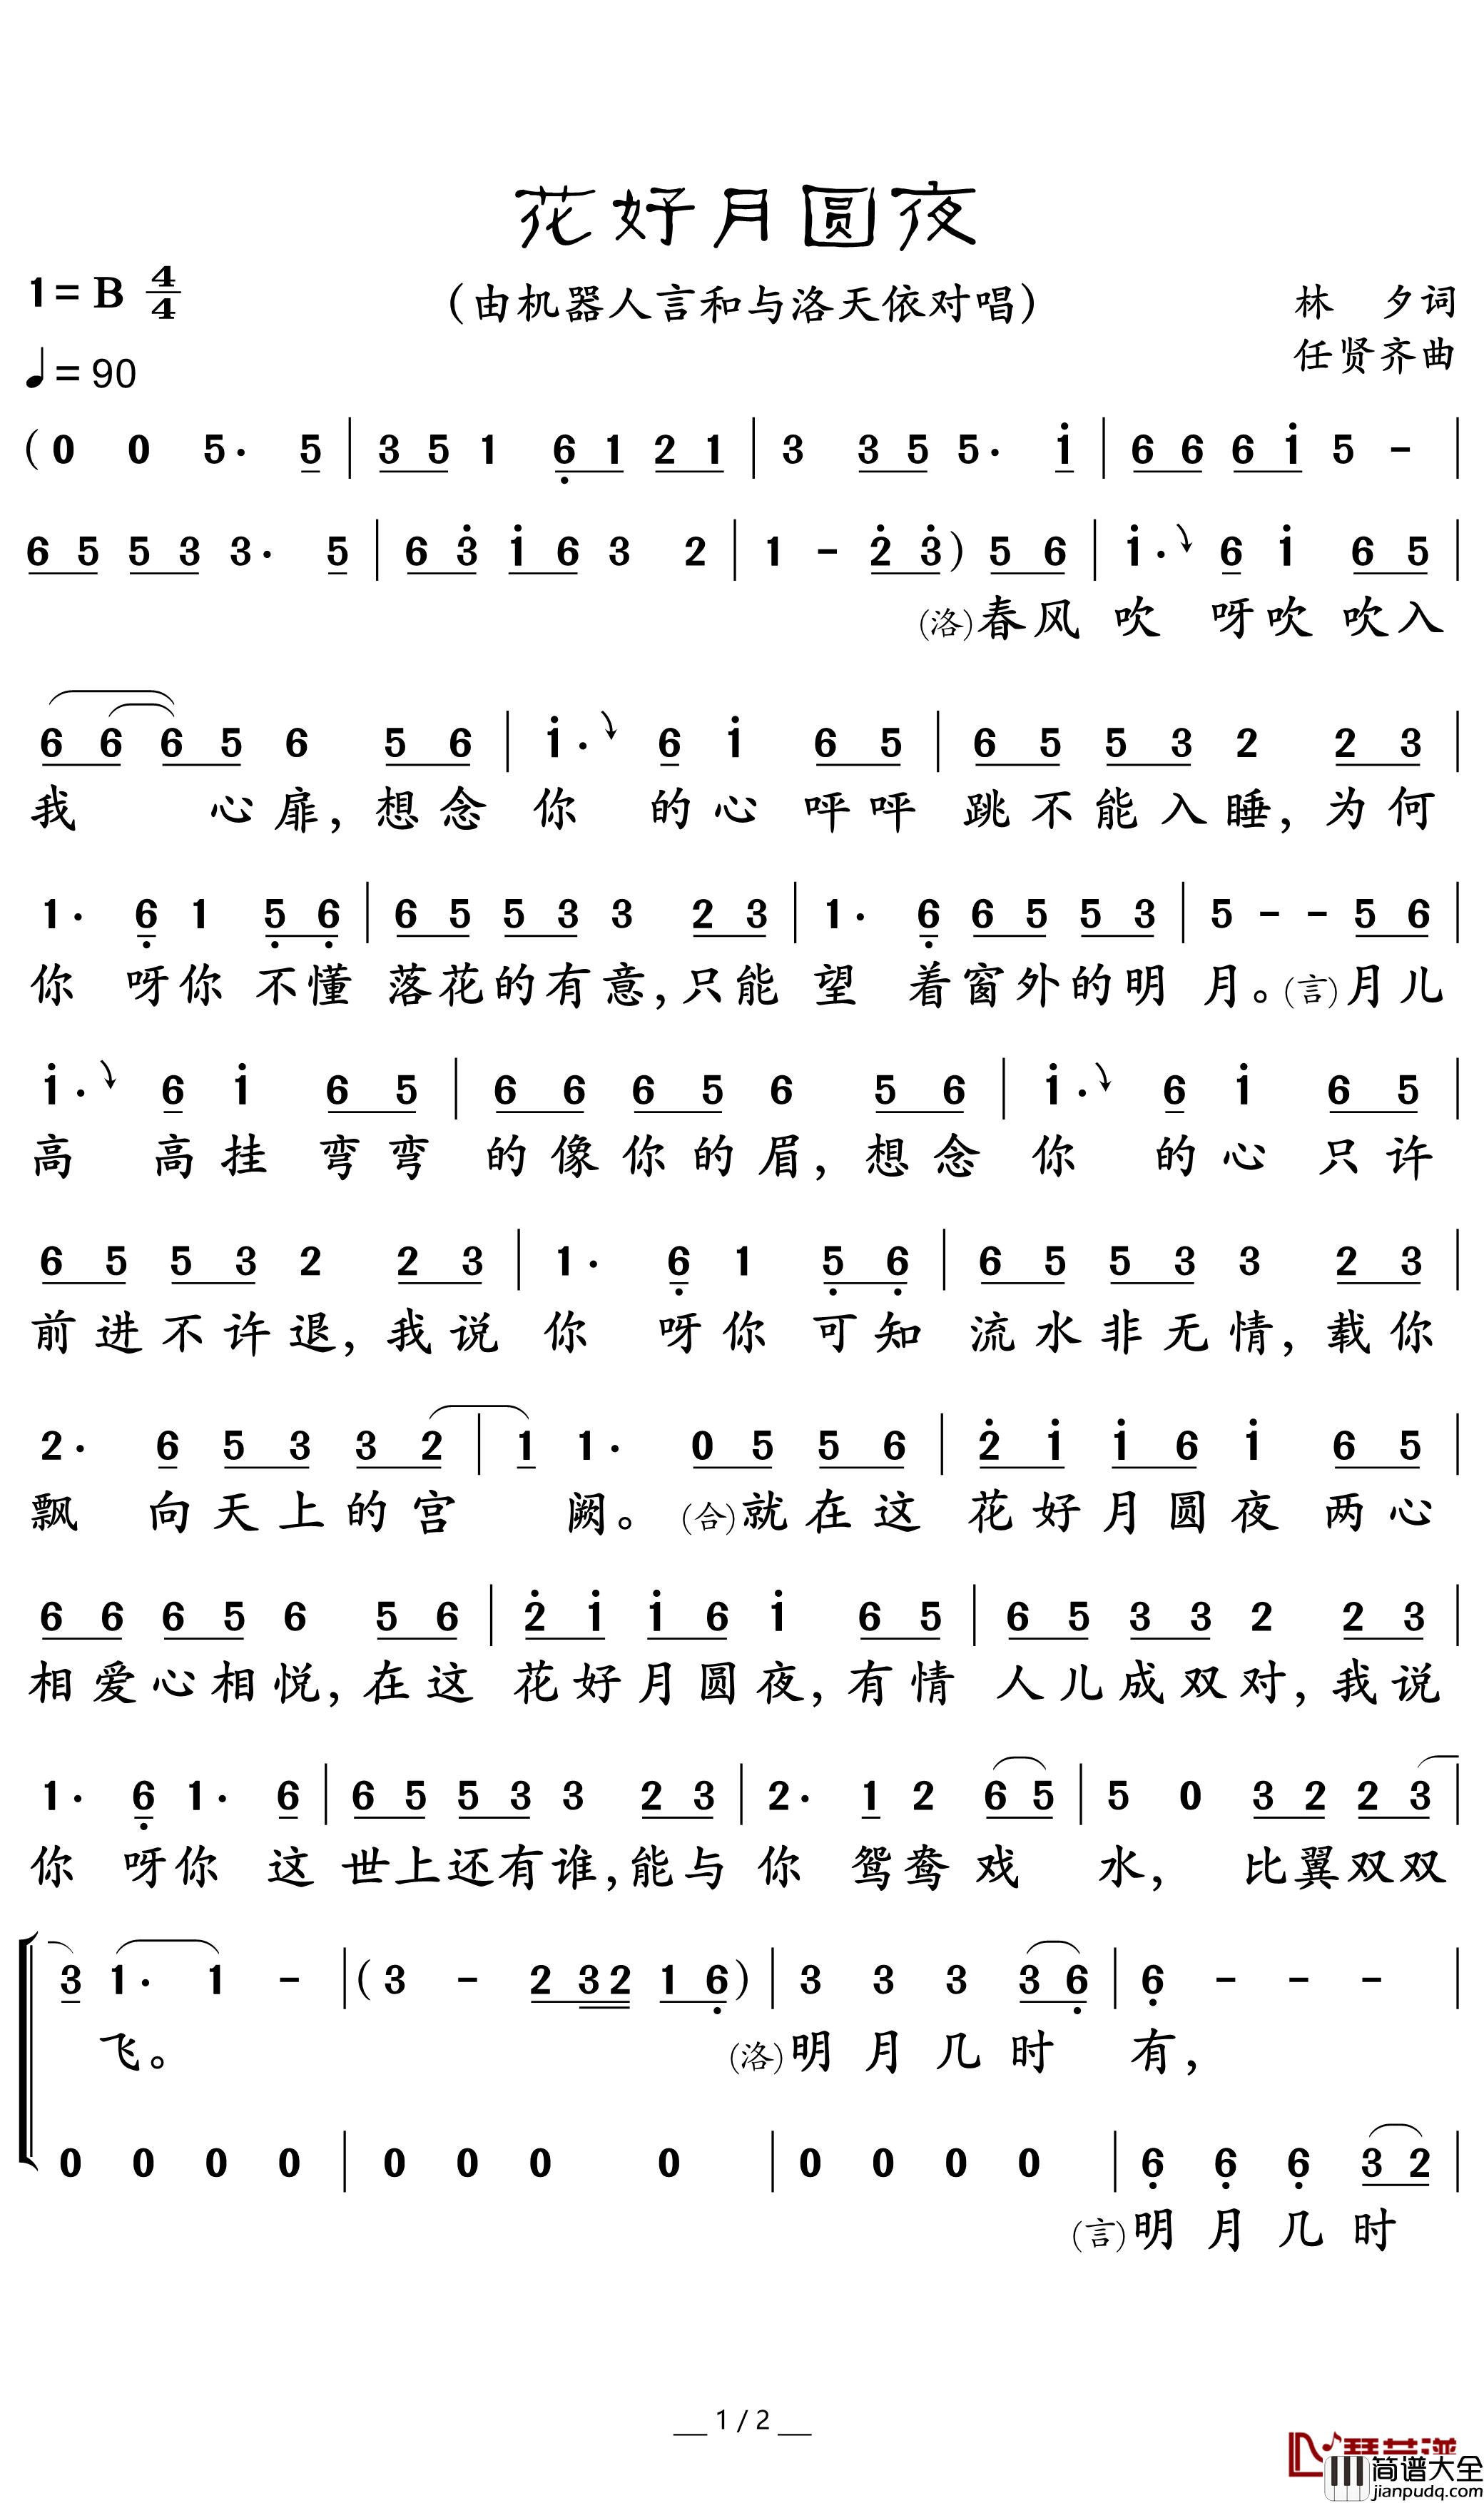 花好月圆夜
1=B 4/4
(由机器人言和与洛天依对唱)
林 夕词
♩=90
任贤齐曲
(0 0 5· 5 | 3 5 1 6 1 2 1 | 3 3 5 5· 1 | 6 6 6 1 5 - |
6 5 5 3 3· 5 | 6 3 1 6 3 2 | 1 - 2 3) 5 6 | 1· 6 1 6 5 |
(洛)春风 吹 呀吹 吹入
6 6 6 5 6 5 6 | 1· 6 1 6 5 | 6 5 5 3 2 2 3 |
我 心扉,想念 你 的心 呯呯 跳不能入睡,为何
1· 6 1 5 6 | 6 5 5 3 3 2 3 | 1· 6 6 5 5 3 | 5 - - 5 6 |
你 呀你 不懂 落花的有意,只能 望 着窗外的明 月。(言)月儿
1· 6 1 6 5 | 6 6 6 5 6 5 6 | 1· 6 1 6 5 |
高 高挂 弯弯 的像你的眉,想念 你 的心 只许
6 5 5 3 2 2 3 | 1· 6 1 5 6 | 6 5 5 3 3 2 3 |
前进不许退,我说 你 呀你 可知 流水非无情,载你
2· 6 5 3 3 2 | 1 1· 0 5 5 6 | 2 1 1 6 1 6 5 |
飘 向天上的宫 阙。 (合)就在这 花好月圆夜 两心
6 6 6 5 6 5 6 | 2 1 1 6 1 6 5 | 6 5 3 3 2 2 3 |
相爱心相悦,在这 花好月圆夜,有情 人儿成双对,我说
1· 6 1· 6 | 6 5 5 3 3 2 3 | 2· 1 2 6 5 | 5 0 3 2 2 3 |
你 呀你 这 世上还有谁,能与 你 鸳鸯戏 水, 比翼双双
3 1· 1 - | (3 - 2 3 2 1 6) | 3 3 3 3 6 | 6 - - - |
飞。 (洛)明 月 几 时 有,
0 0 0 0 | 0 0 0 0 | 0 0 0 0 | 6 6 6 3 2 |
(言)明 月 几 时
1 / 2
简谱大全
jianpudq.com